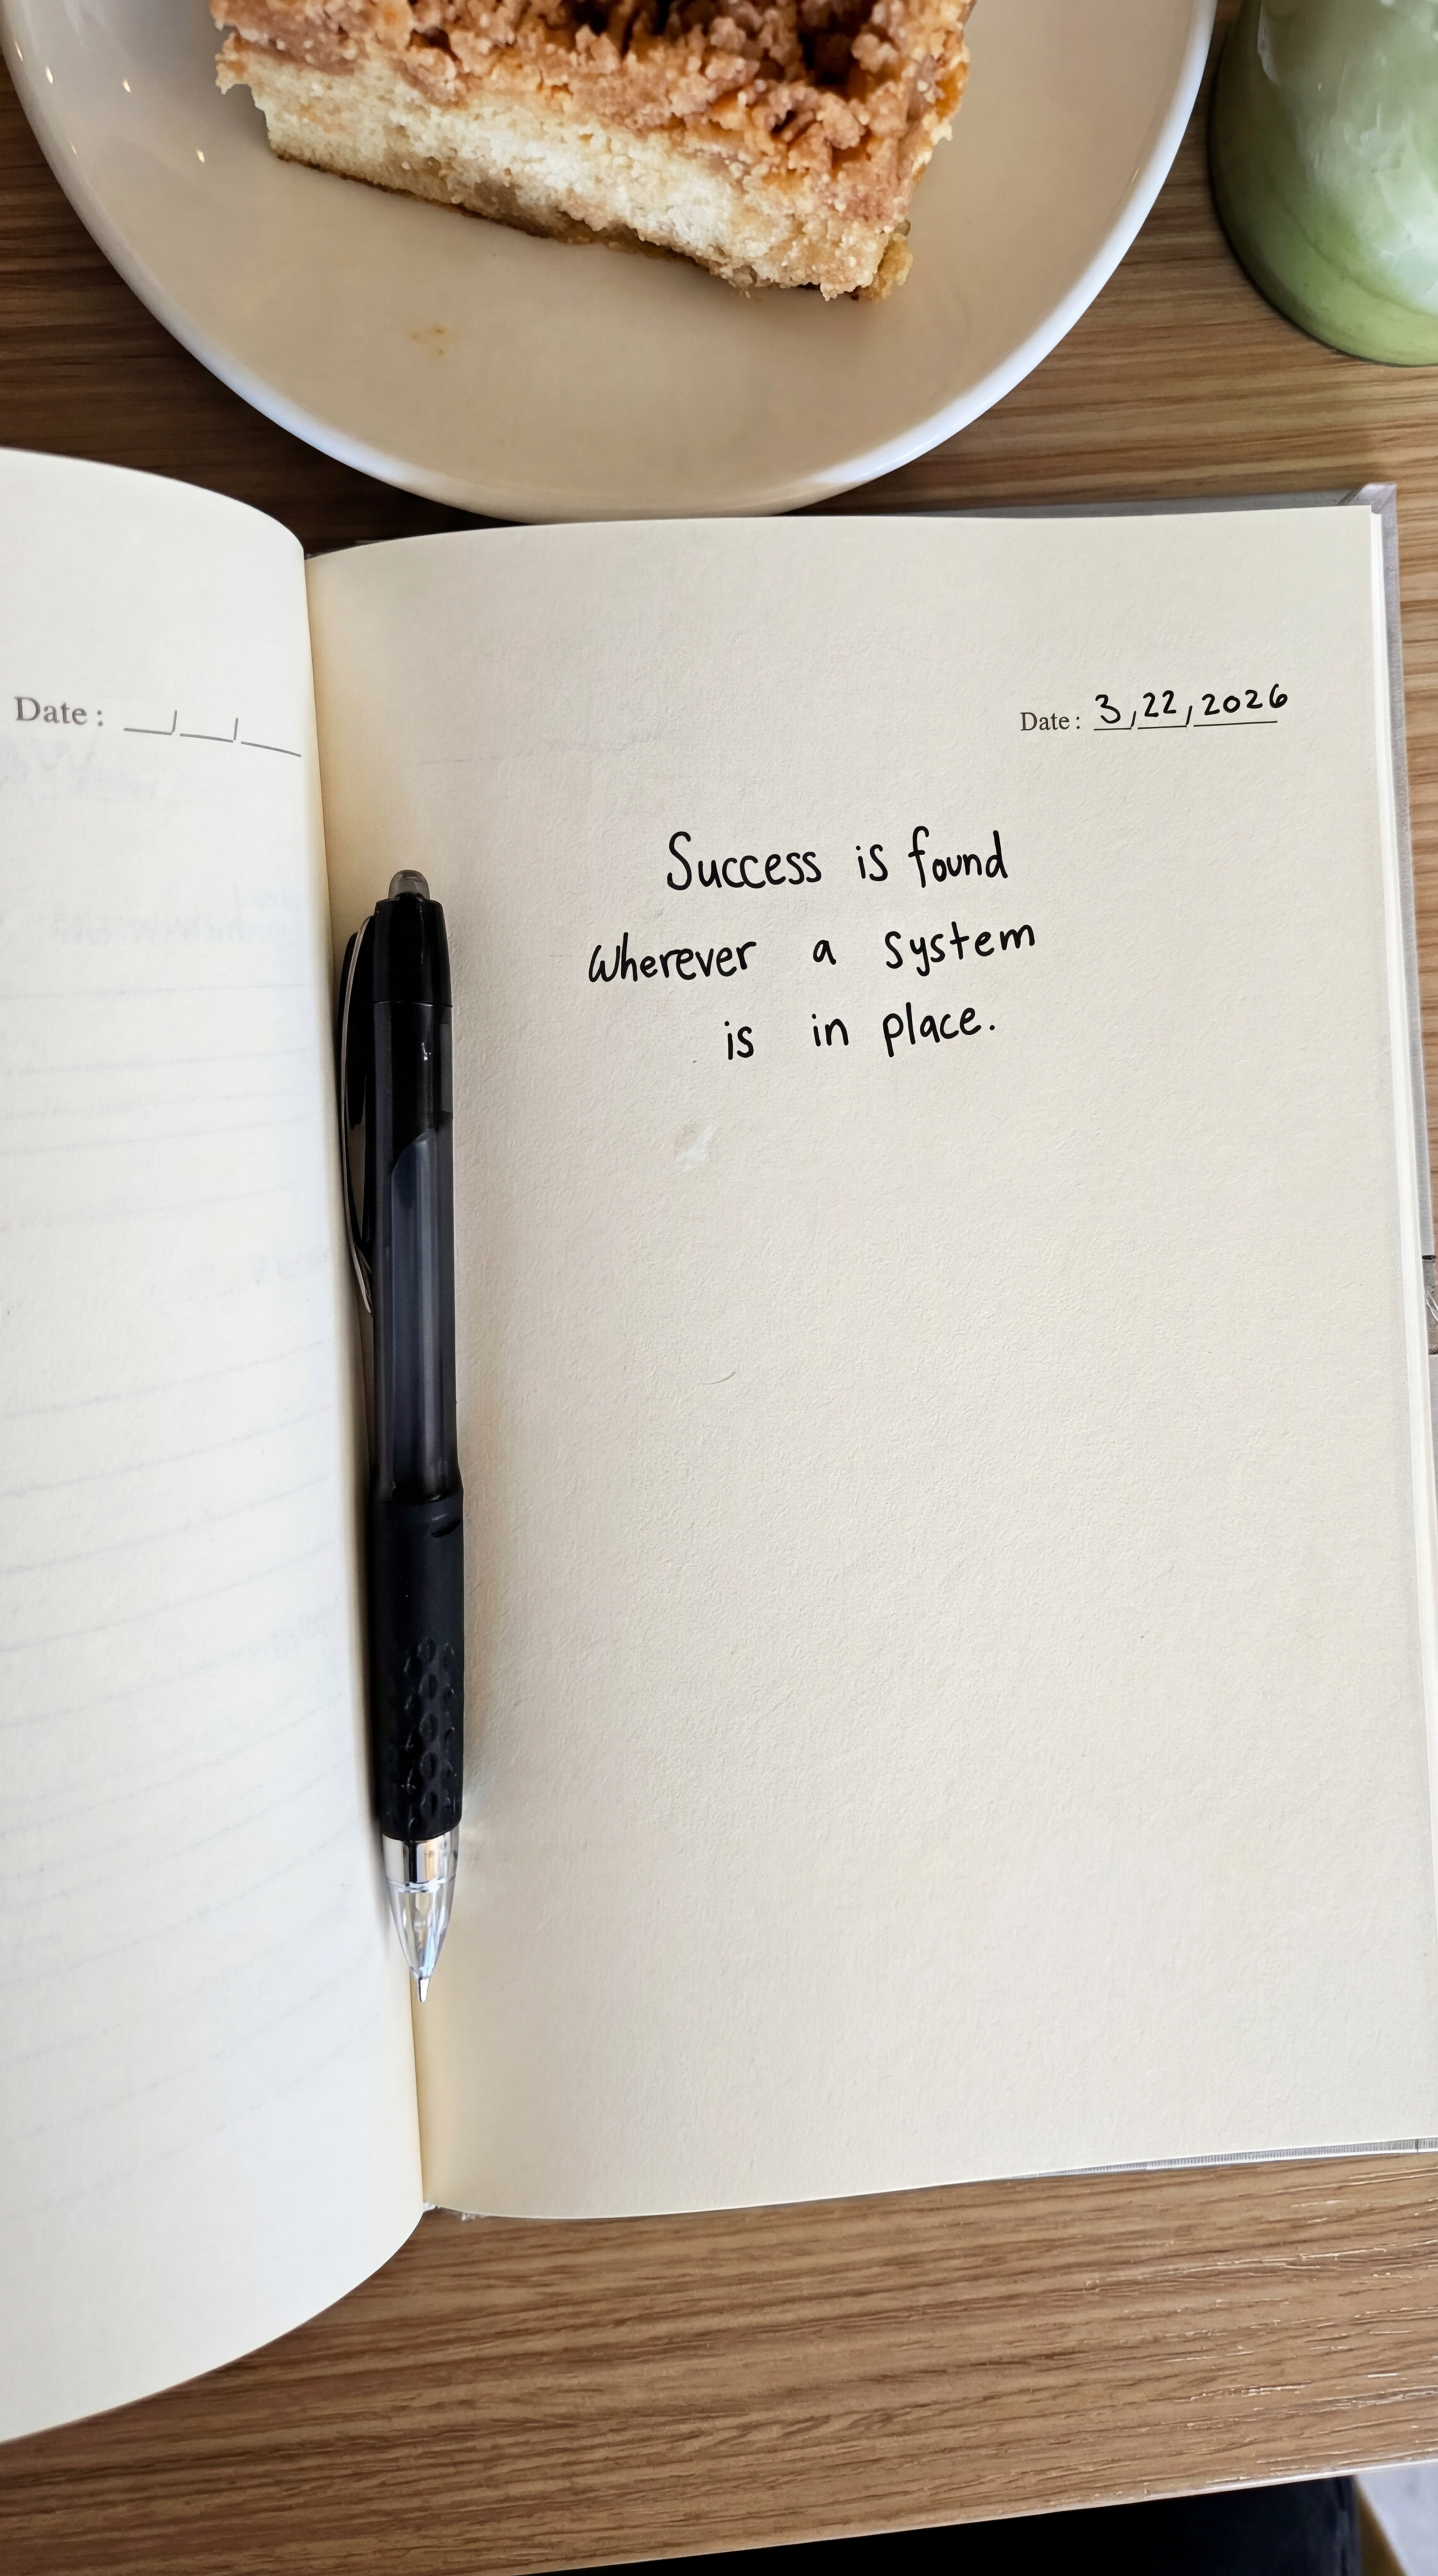 Date:
Date: 3,22,2026
Success is found
wherever a system
is in place.